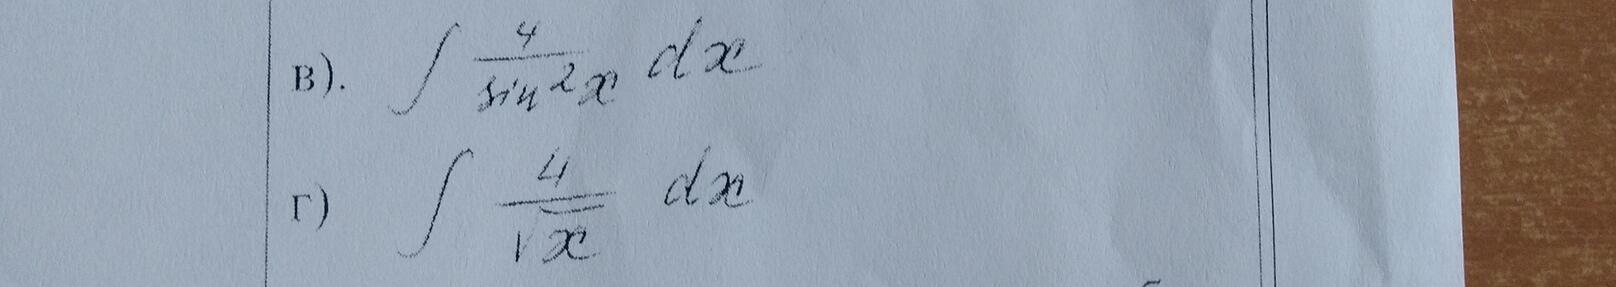 в). ∫ 4/sin²x dx
г) ∫ 4/√x dx